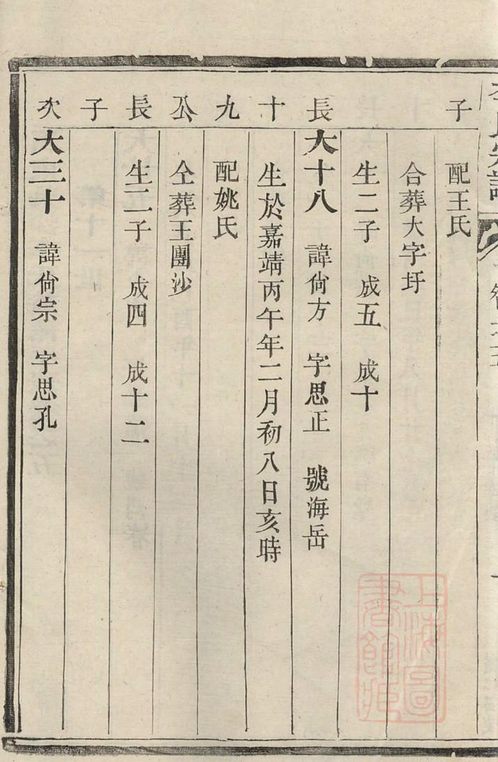 子 長 十 九 公 長 子 次
配王氏
合葬大字圩
生二子 成五 成十
大十八 諱尙方 字思正 號海岳
生於嘉靖丙午年二月初八日亥時
配姚氏
仝葬王團沙
生二子 成四 成十二
大三十 諱尙宗 字思孔
上海圖書館藏